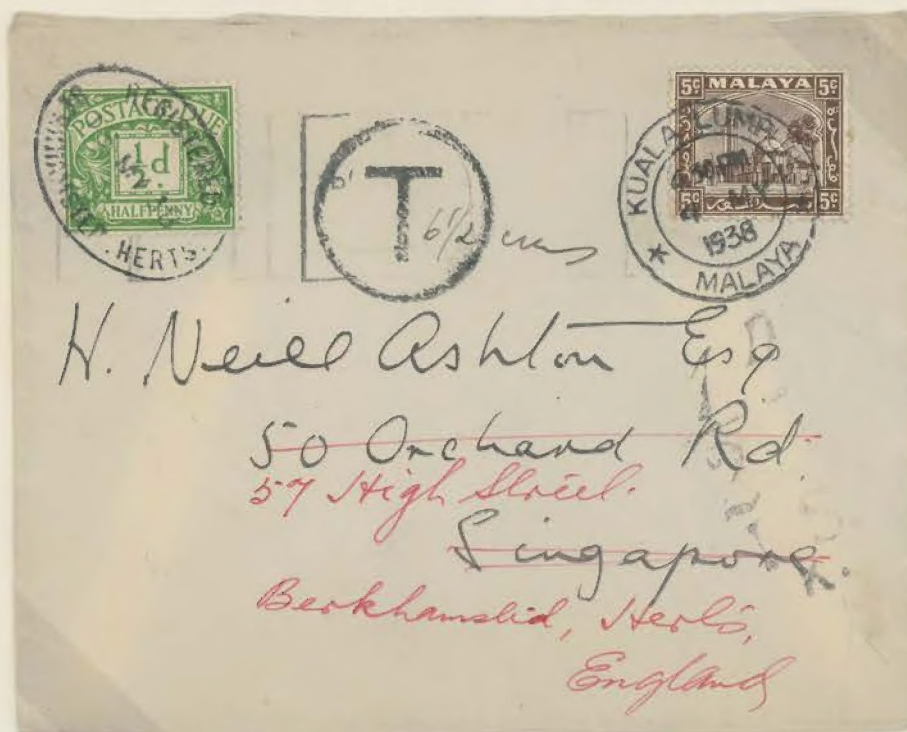 REGISTERED
HERTS.
POSTAGE DUE
½d
HALFPENNY
T
6½ cms
5c MALAYA 5c
5c 5c
KUALA LUMPUR
1938
MALAYA
H. Neill Ashton Esq
50 Orchard Rd.
57 High Street.
Singapore
Berkhamstid, Herts,
England